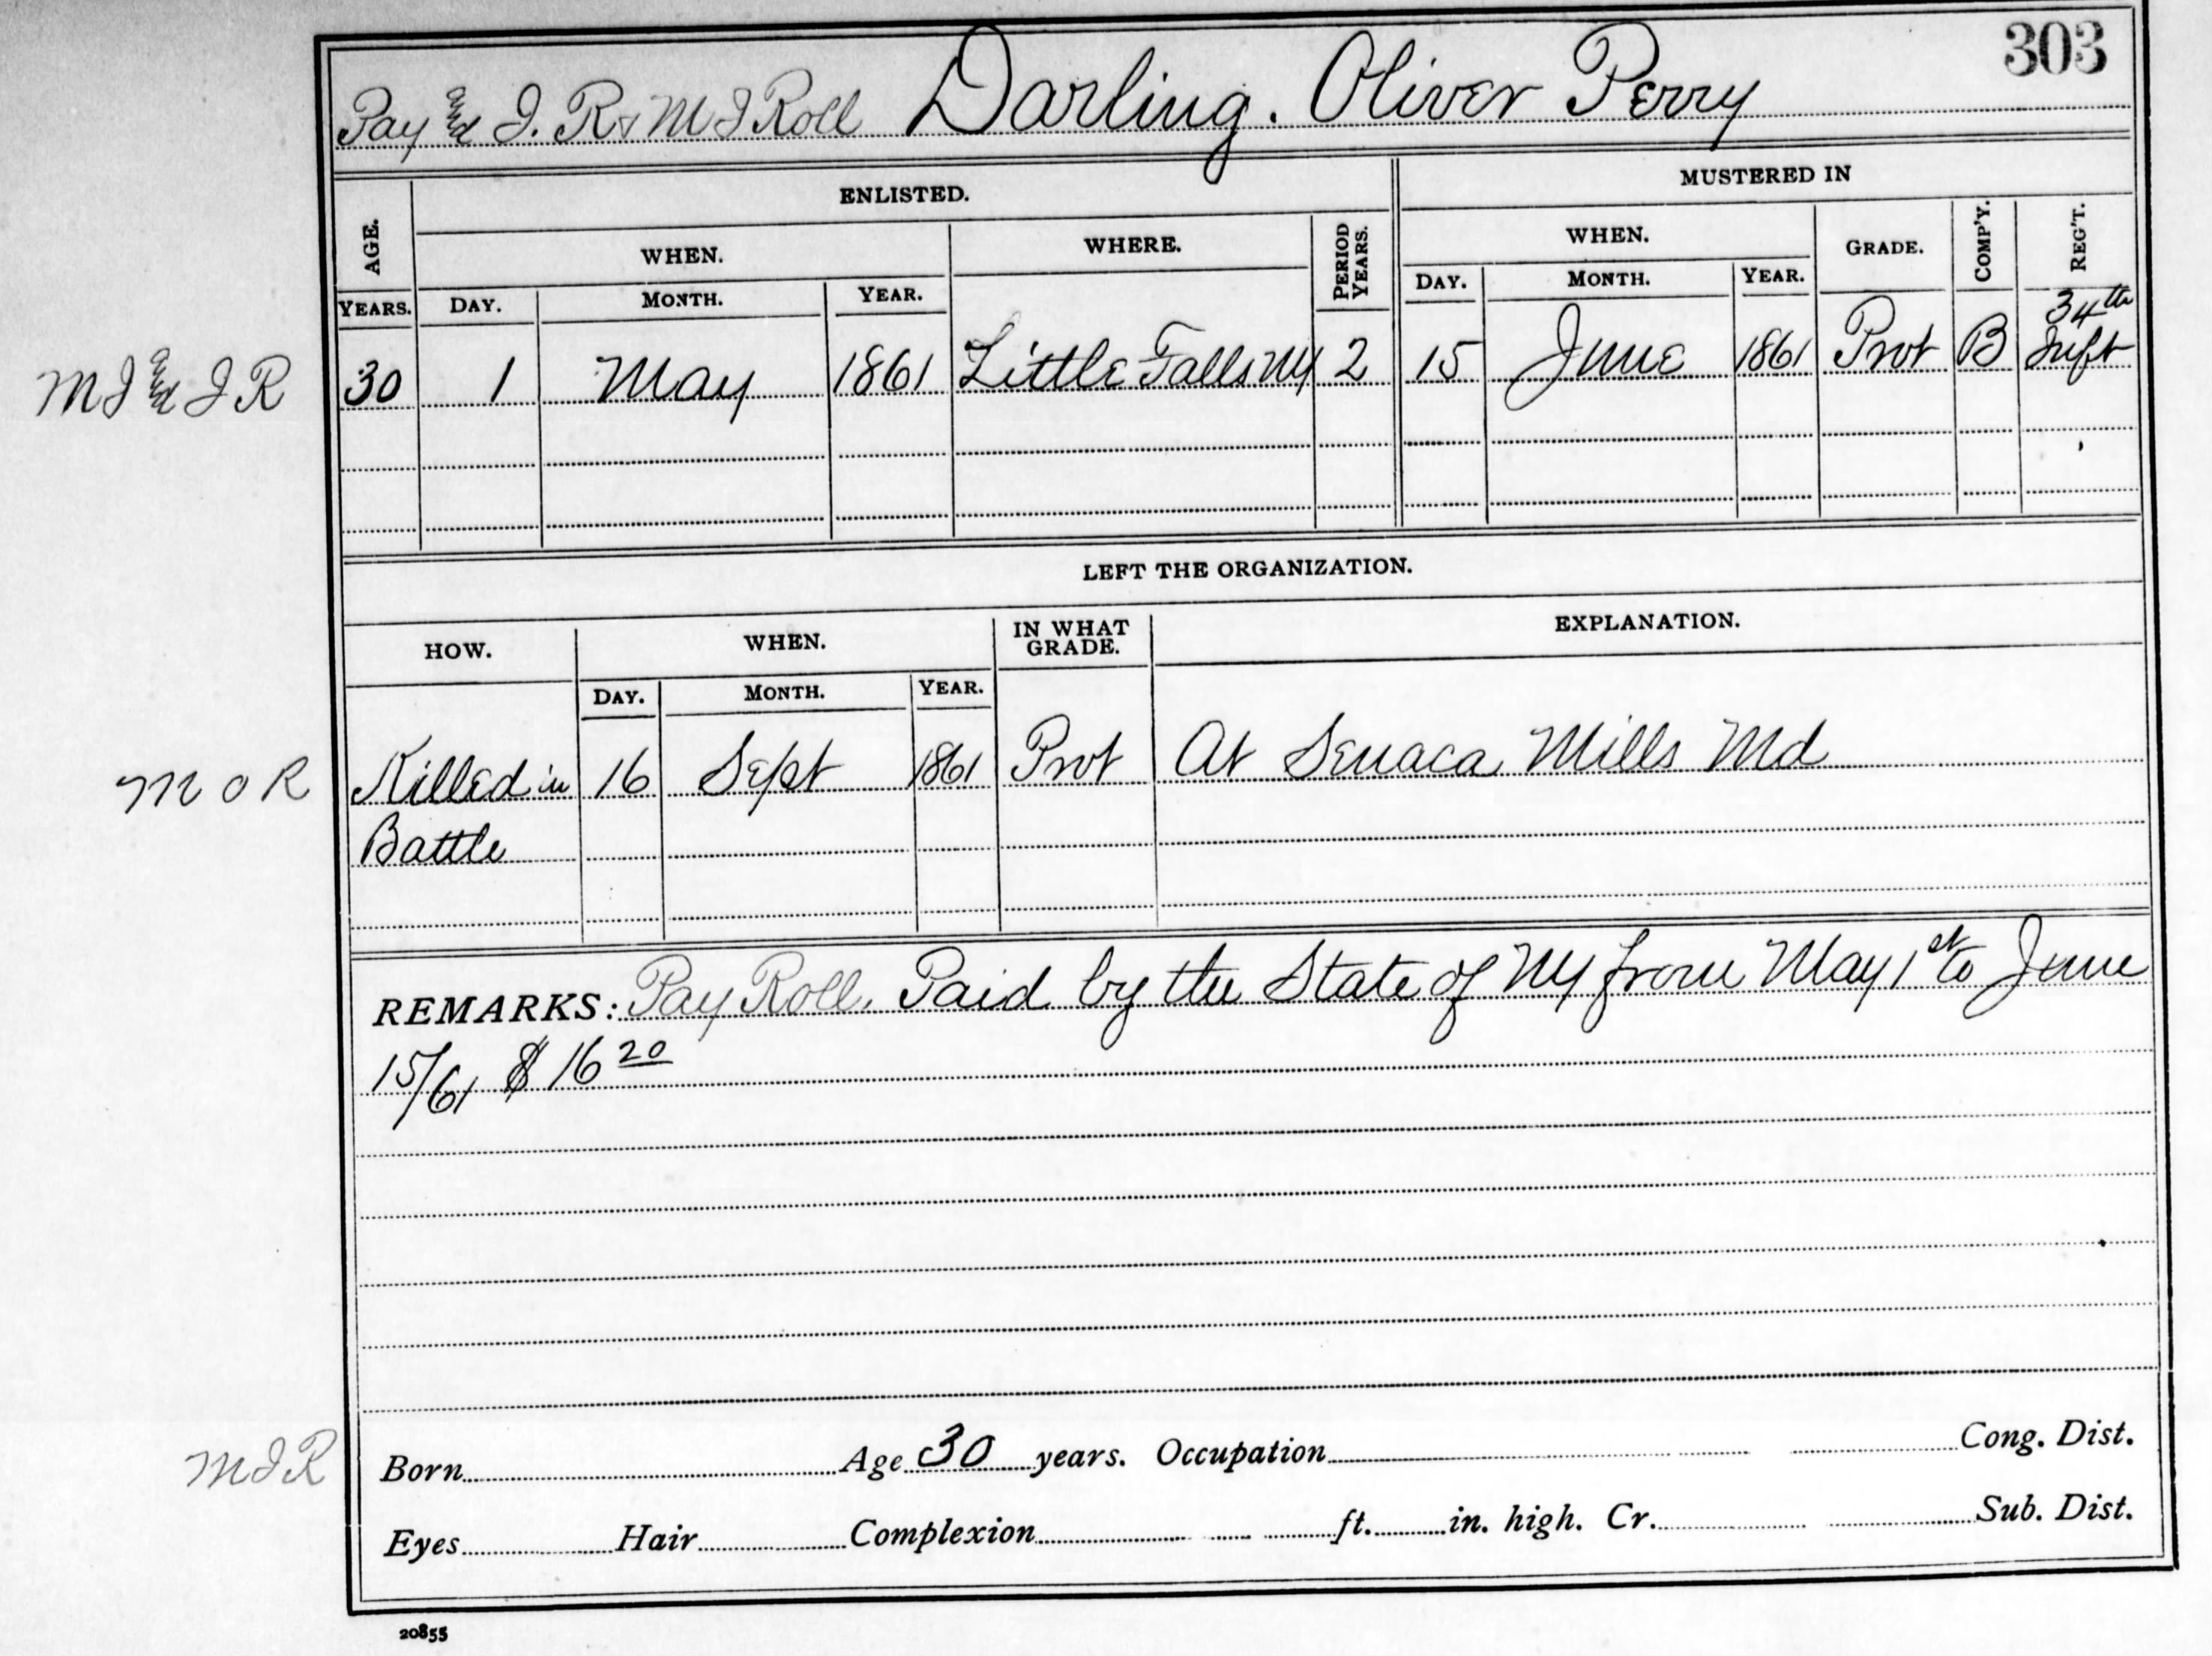 303
Pay & J. R & M I Roll Darling. Oliver Perry
ENLISTED. MUSTERED IN
AGE. WHEN. WHERE. PERIOD YEARS. WHEN. GRADE. COMP'Y. REG'T.
YEARS. DAY. MONTH. YEAR. DAY. MONTH. YEAR.
34th
M I & I R 30 1 May 1861 Little Falls NY 2 15 June 1861 Privt B Inft
LEFT THE ORGANIZATION.
HOW. WHEN. IN WHAT GRADE. EXPLANATION.
DAY. MONTH. YEAR.
M O R Killed in 16 Sept 1861 Privt At Senaca Mills Md
Battle
REMARKS: Pay Roll. Paid by the State of NY from May 1st to June
15/61 $16 20
M I R Born Age 30 years. Occupation Cong. Dist.
Eyes Hair Complexion ft. in. high. Cr. Sub. Dist.
20855